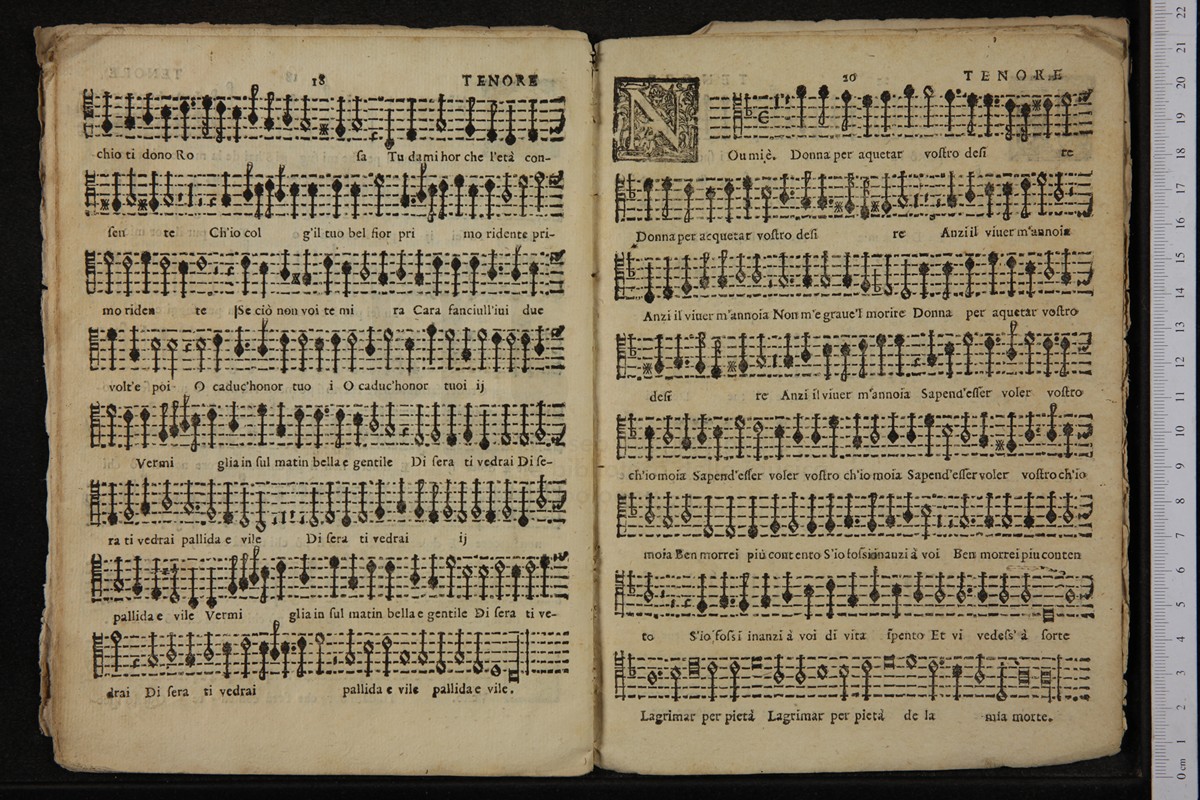 18 TENORE
chio ti dono Ro sa Tu dami hor che l'età con-
sen te Ch'io col g'il tuo bel fior pri mo ridente pri-
mo riden te Se ciò non voi te mi ra Cara fanciull'iui due
volt'e poi O caduc'honor tuo i O caduc'honor tuoi ij
Vermi glia in sul matin bella e gentile Di sera ti vedrai Di se-
ra ti vedrai pallida e vile Di sera ti vedrai ij
pallida e vile Vermi glia in sul matin bella e gentile Di sera ti ve-
drai Di sera ti vedrai pallida e vile pallida e vile.
20 TENORE
N Ou miè. Donna per aquetar vostro desi re
Donna per acquetar vostro desi re Anzi il viuer m'annoia
Anzi il viuer m'annoia Non m'e graue'l morire Donna per aquetar vostro
desi re Anzi il viuer m'annoia Sapend'esser voler vostro
ch'io moia Sapend'esser voler vostro ch'io moia Sapend'esser voler vostro ch'io
moia Ben morrei più contento S'io fossi inanzi à voi Ben morrei piu conten
to S'io fossi inanzi à voi di vita spento Et vi vedess' à sorte
Lagrimar per pietà Lagrimar per pietà de la mia morte.
22
21
20
19
18
17
16
15
14
13
12
11
10
9
8
7
6
5
4
3
2
1
0 cm